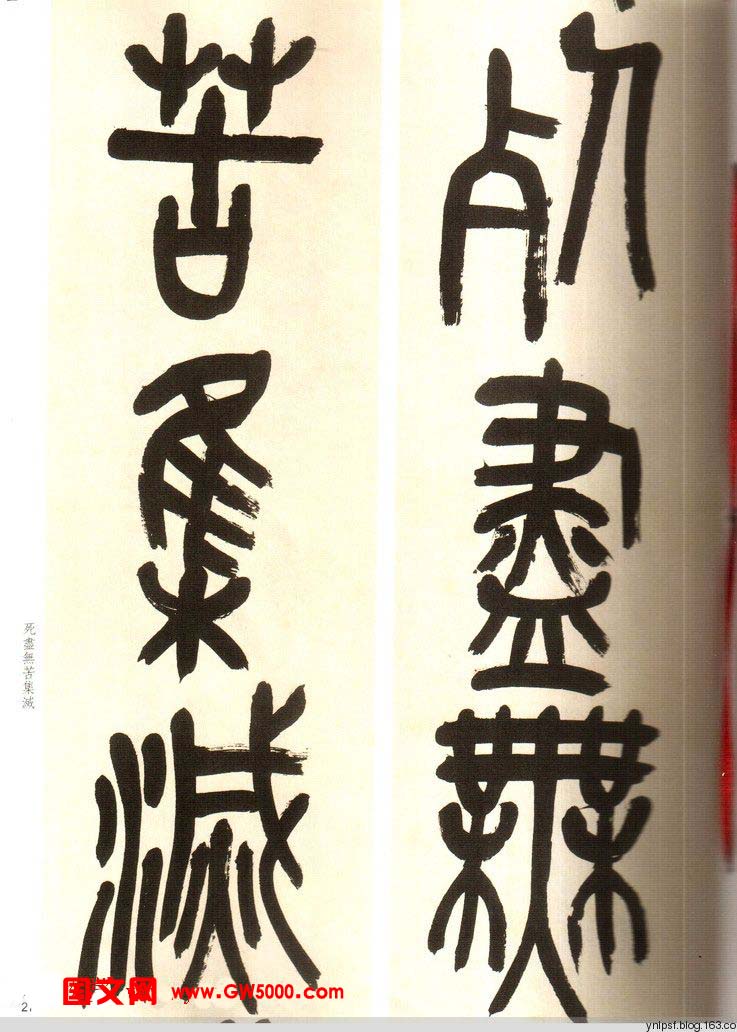 死盡無
苦集滅
死盡無苦集滅
2
图文网 www.GW5000.com
ynlpsf.blog.163.co